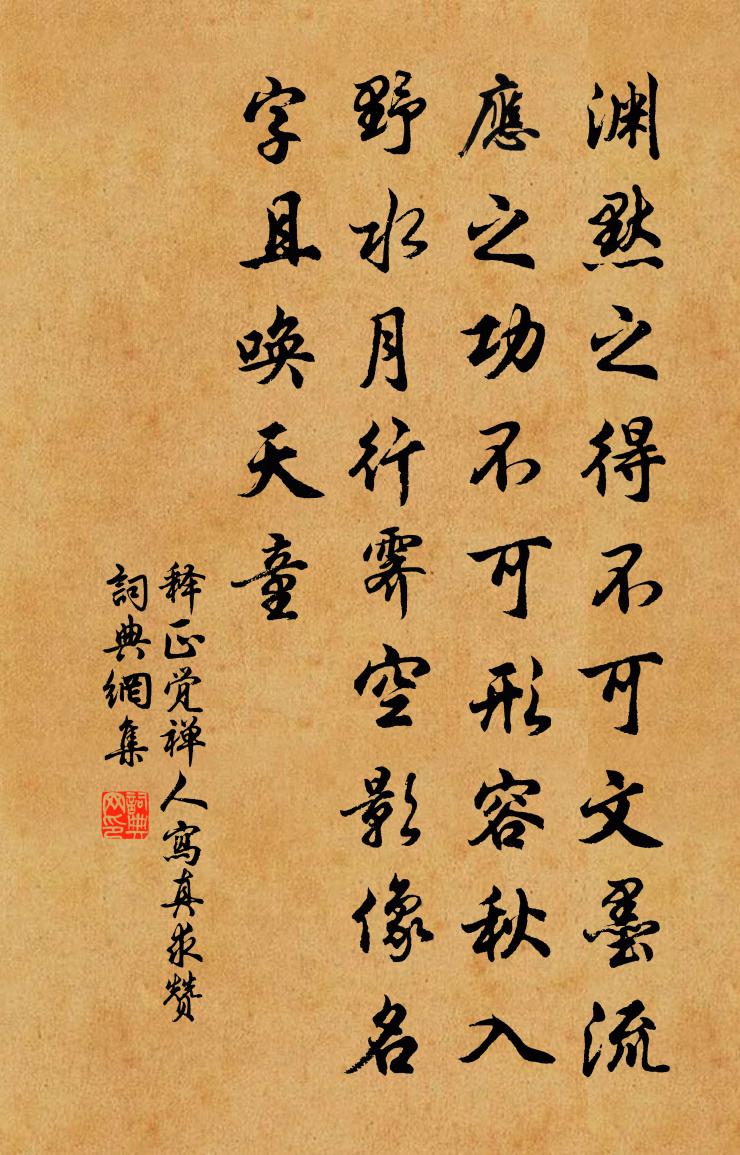 渊默之得不可文墨流
應之功不可形容秋入
野水月行霽空影像名
字且唤天童
释正觉禅人寫真求赞
詞典網集
詞典網印